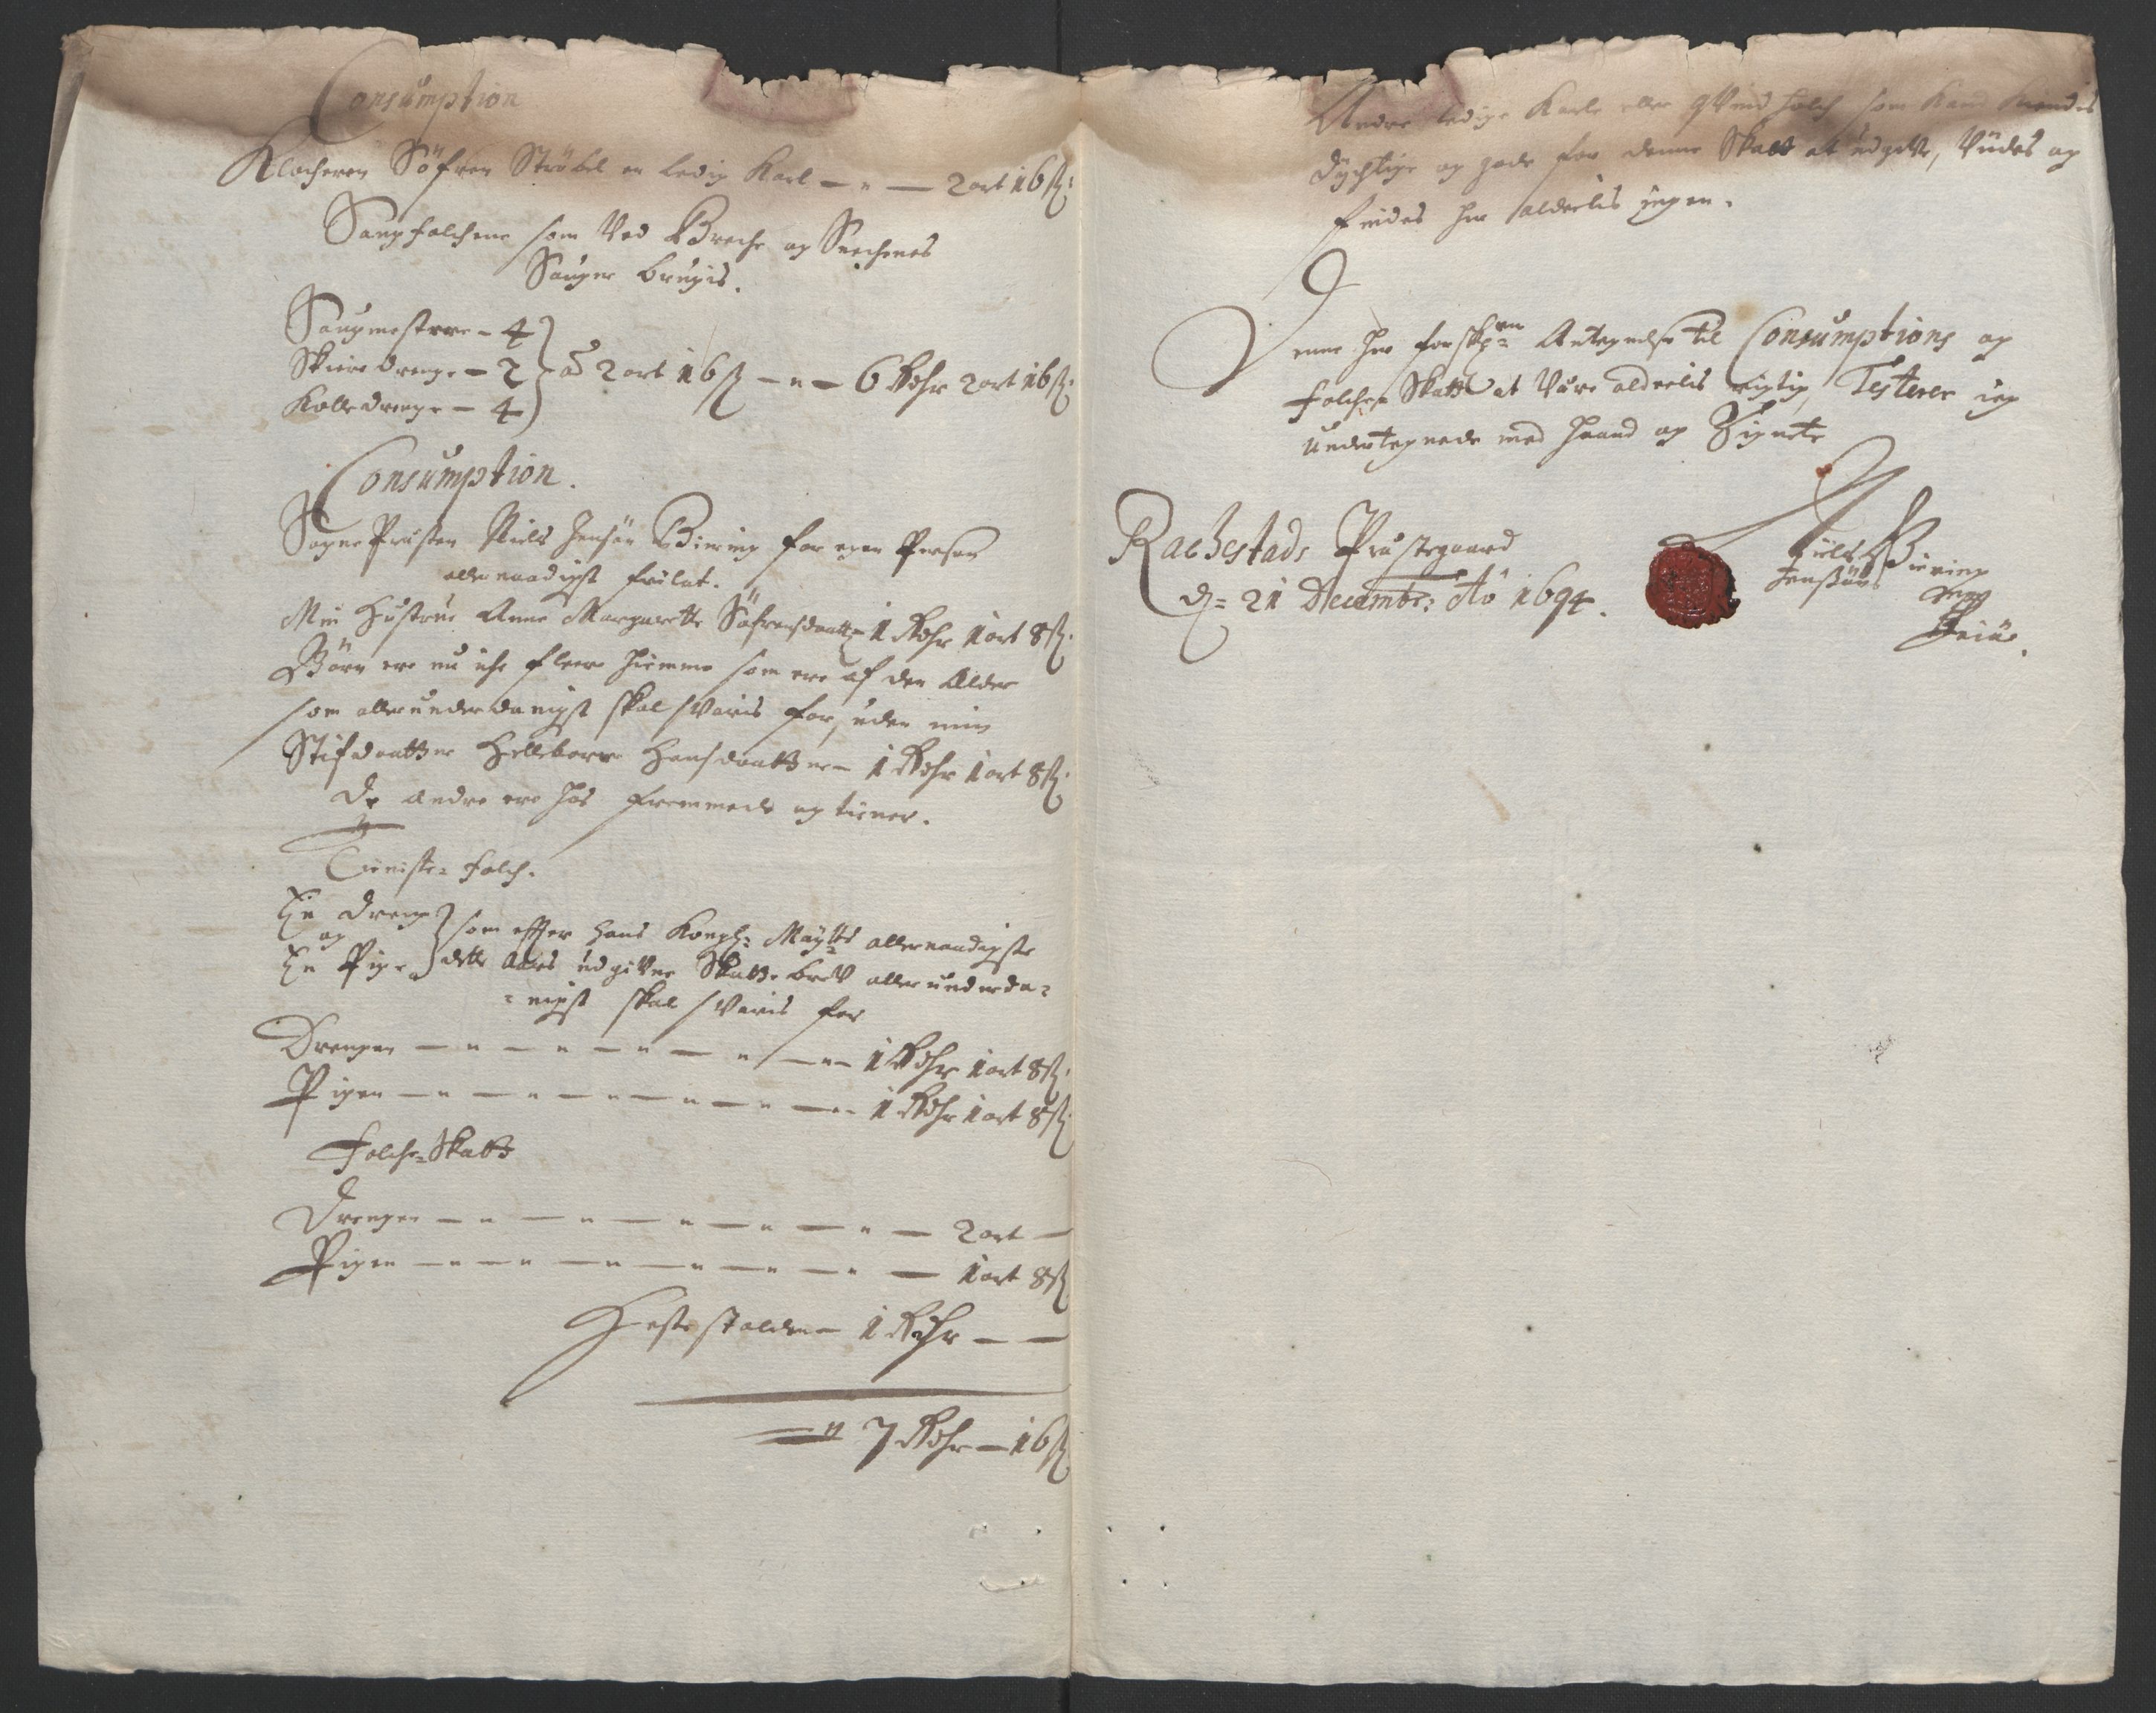 Consumption
Klocheren Söfren Strøbel en ledig Karl — " — 2 ort 16 ß:
Saugfolchene som Ved Breche og Srechenes
Sauger brugis.
Saugmestere - 4
Skiere drenge - 2 } a 2 ort 16 ß — " — 6 Rdhr 2 ort 16 ß:
Kolle drenge - 4
Consumption.
Sogne Presten Niels Jensön Biering for egen Person
allernaadigst frilat.
Min Hustrue Anne Margarette Söfrensdaatter 1 Rdhr 1 ort 8 ß:
Börn ere nu iche fleere hiemme som ere af den Alder
som allerunderdanigst skal Svaris for, uden min
Stifdaatter Helleborre Hansdaatter — 1 Rdhr 1 ort 8 ß:
De andre ere hos fremmede og tiener.
Tieniste folch.
En dreng
og
En Pige } som effter Hans Kongl: Maytts allernaadigste
dette Aars udgifne Skatte bref allerunderda-
-nigst skal Svaris for
Drengen — " — " — " — " — 1 Rdhr 1 ort 8 ß:
Pigen — " — " — " — " — 1 Rdhr 1 ort 8 ß
Folche-Skatt
Drengen — " — " — " — " — 2 ort —
Pigen — " — " — " — " — 1 ort 8 ß
Heste stalden 1 Rdhr — —
" 7 Rdhr — 16 ß
Andre ledige Karle eller qVind folch som kand kiendes
dychtige og gode for denne Skatt at udgifve, Vides og
findes her alderlis ingen.
Denne her forskrefne Antegnelse til Consumptions og
folche Skatt at Være alderlis rigtig, Testerer ieg
undertegnede med Haand og Signete
Rachestads Præstegaard
d: 21 Decembr: Ao 1694.
Niels Biering
Jenssön